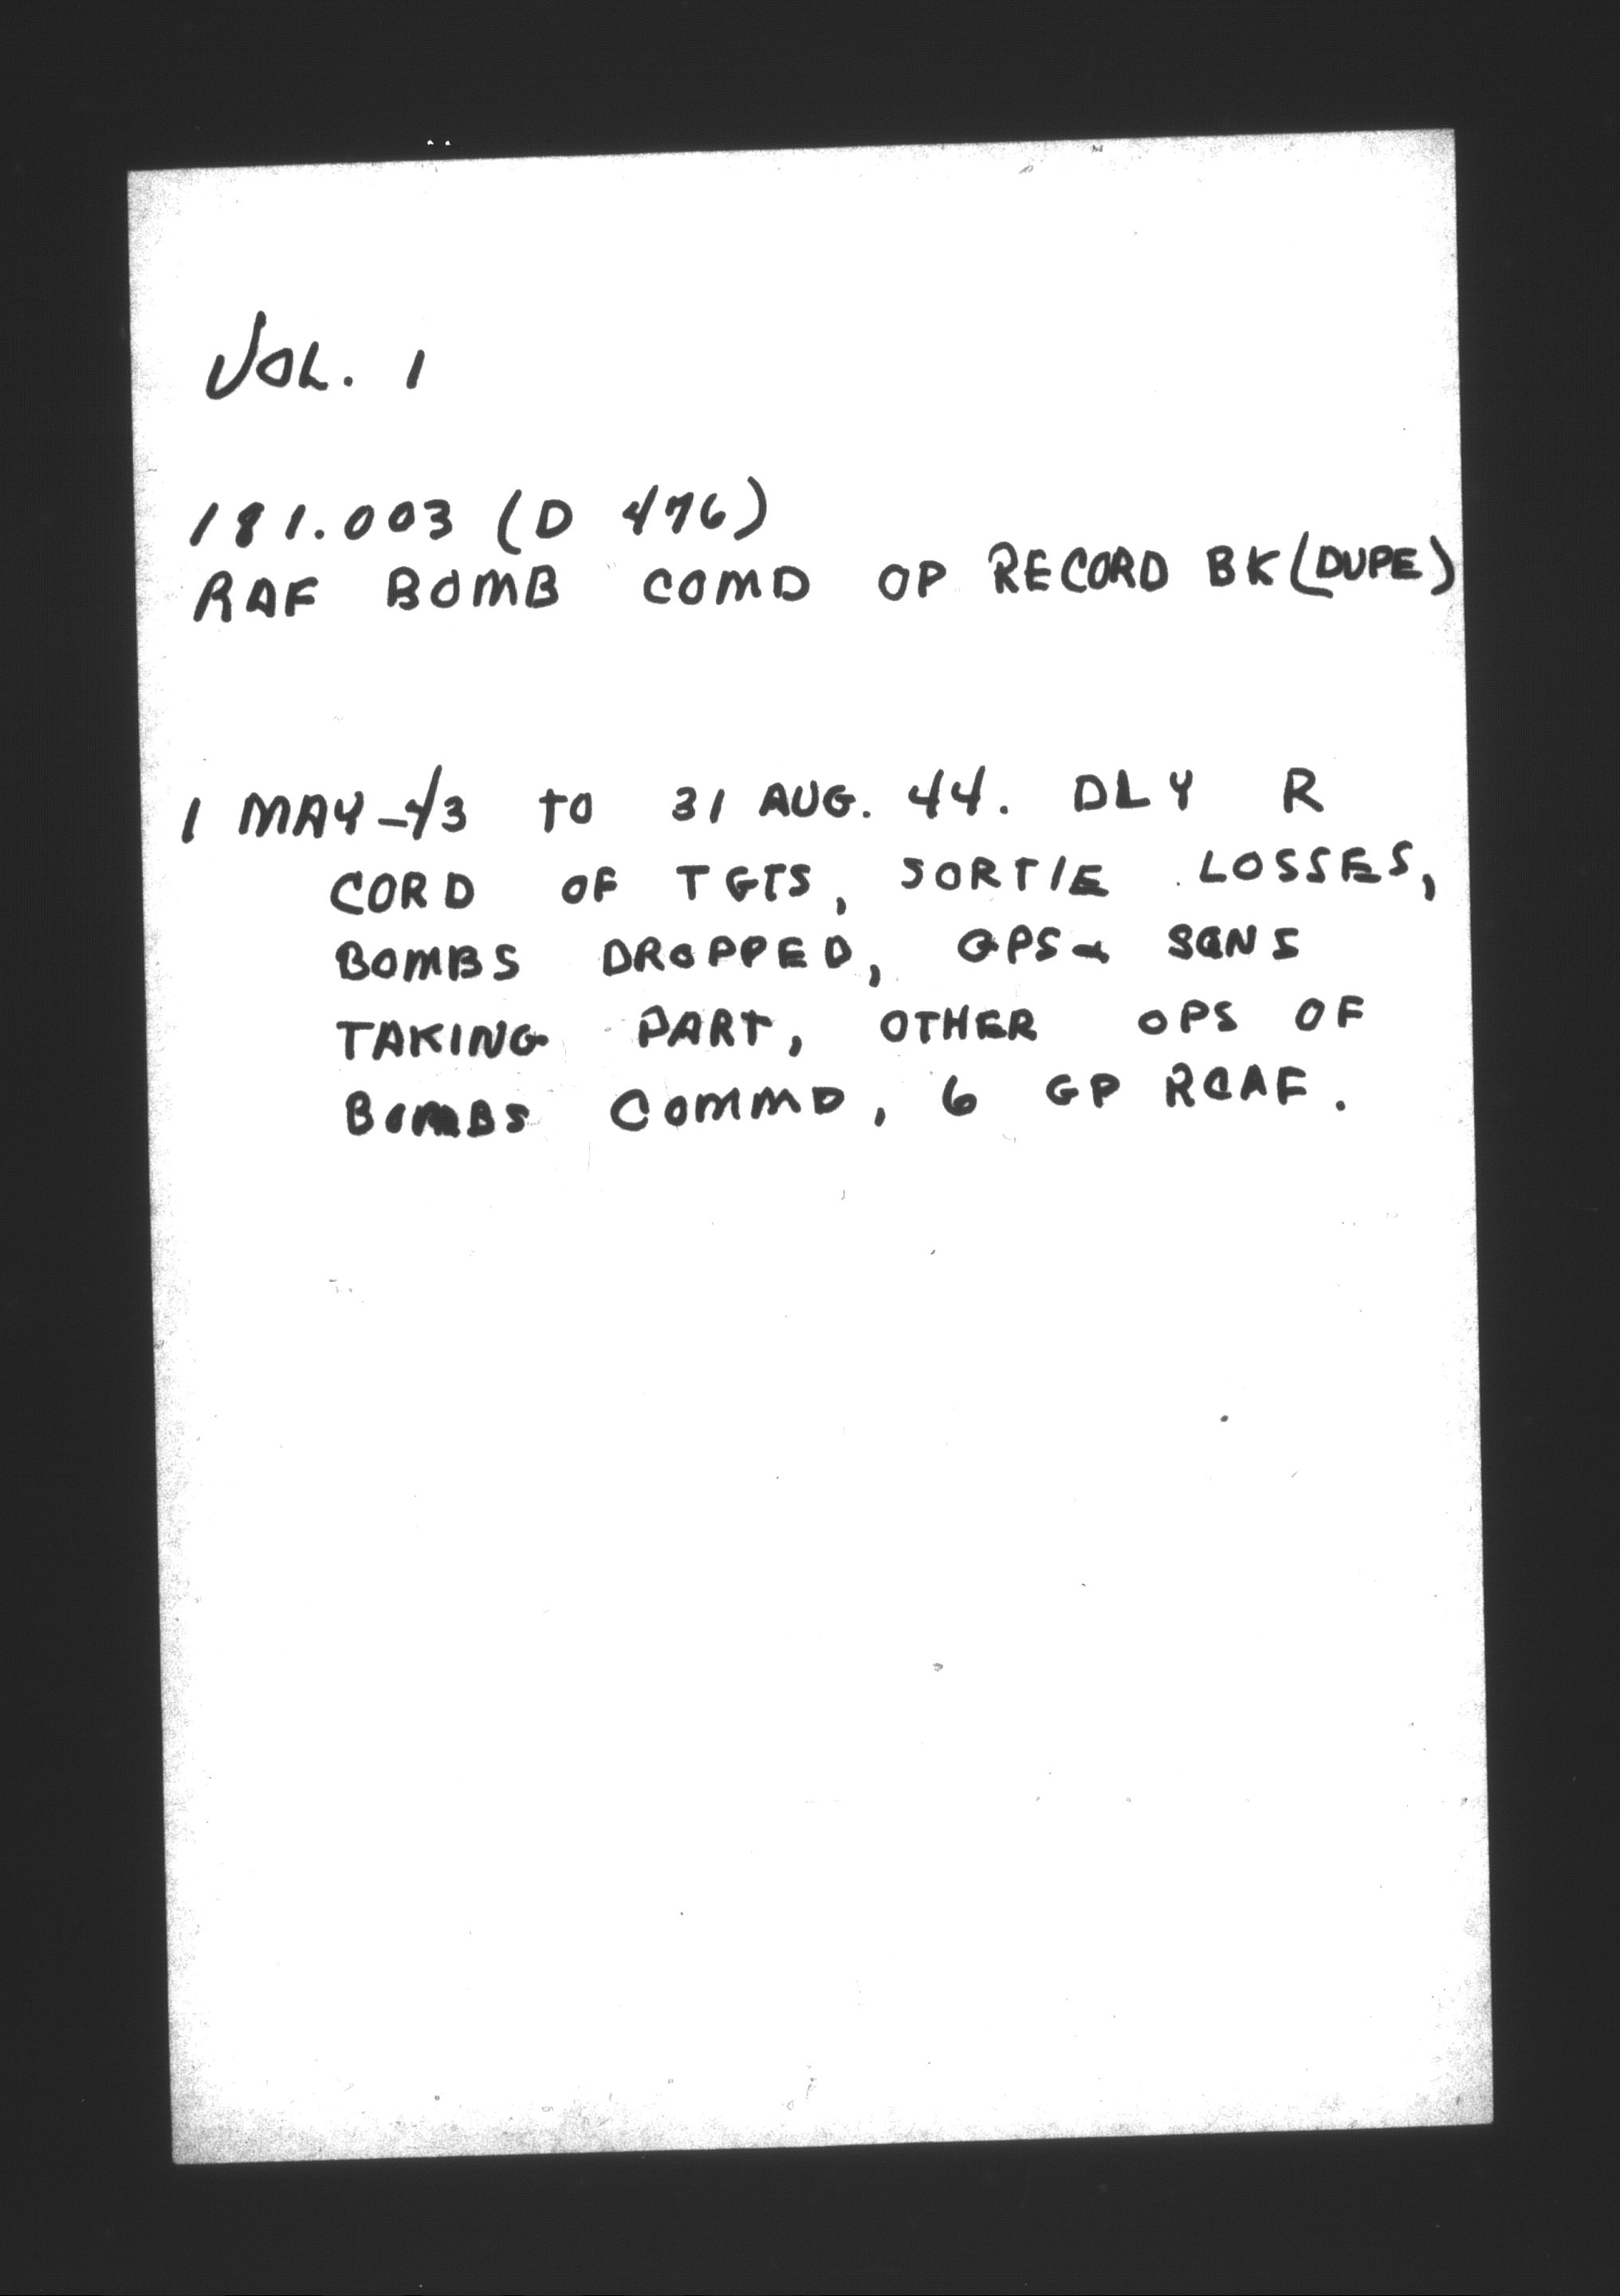 VOL. 1
181.003 (D 476)
RAF BOMB COMD OP RECORD BK (DUPE)
1 MAY-43 to 31 AUG. 44. DLY R
CORD OF TGTS, SORTIE LOSSES,
BOMBS DROPPED, GPS & SQNS
TAKING PART, OTHER OPS OF
BOMBS COMMD, 6 GP RCAF.